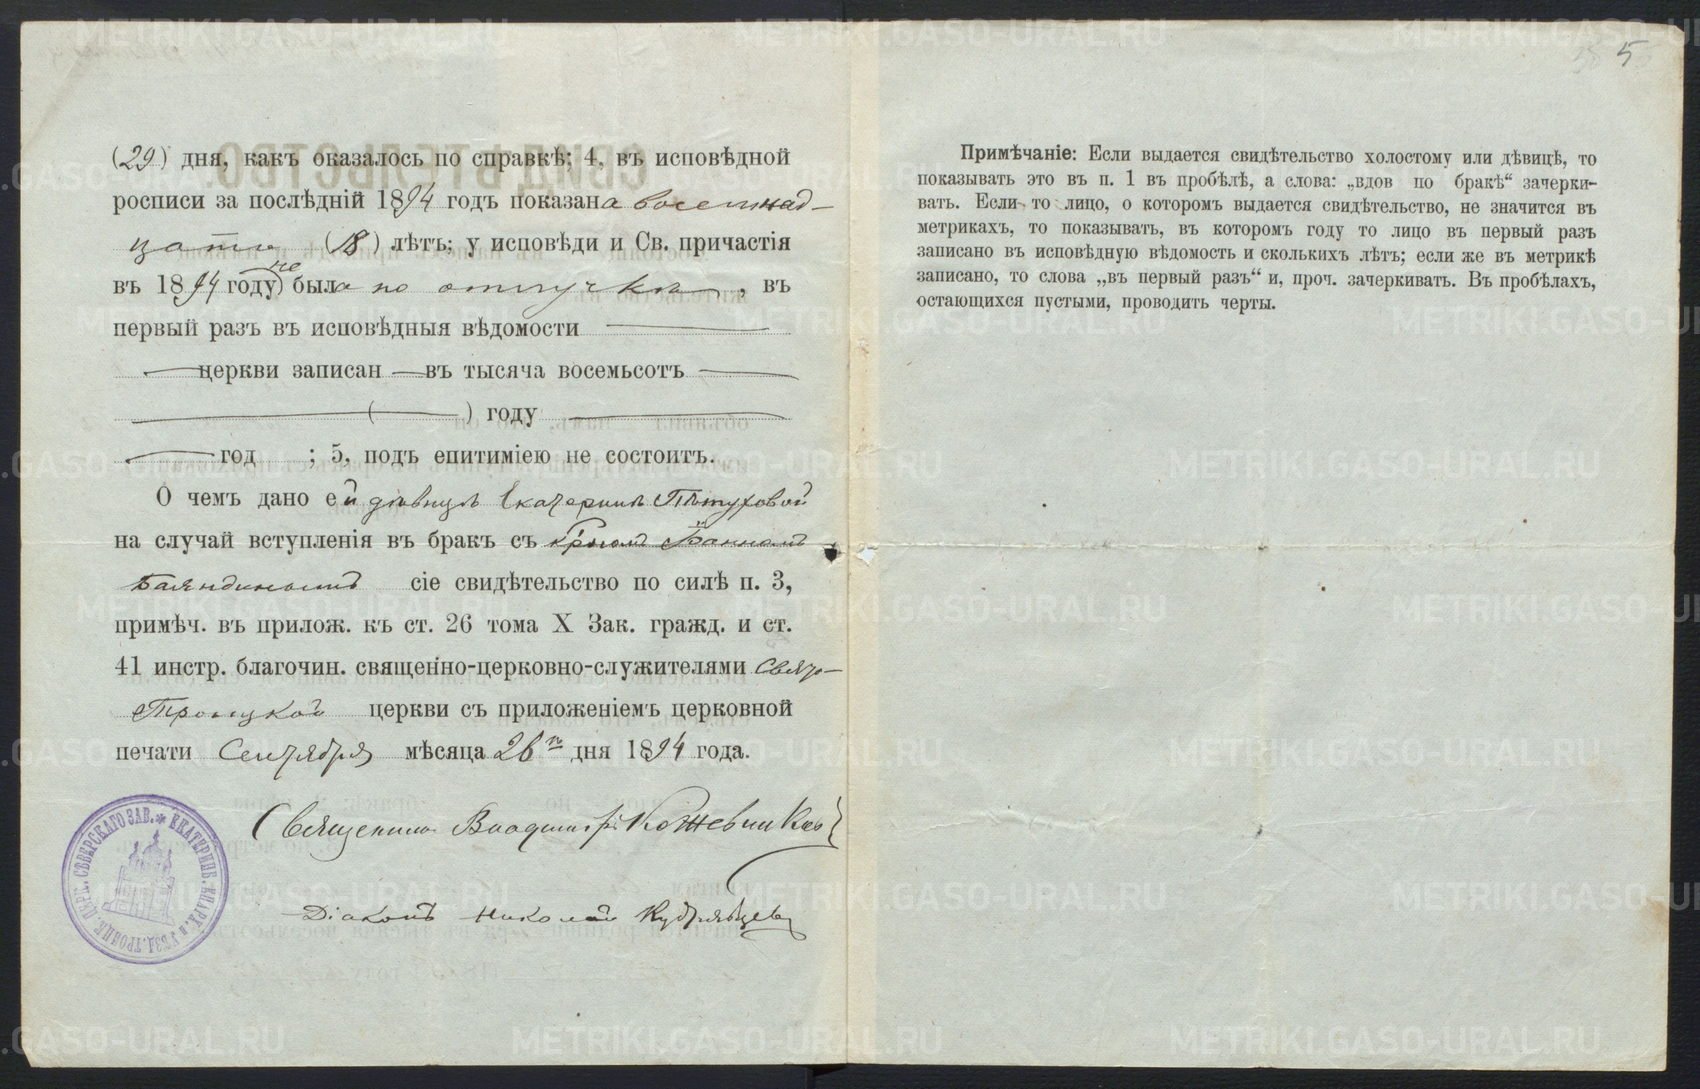 5
(29) дня, какъ оказалось по справкѣ; 4, въ исповѣдной
росписи за послѣдній 1894 годъ показана восемнад-
цати (18) лѣтъ; у исповѣди и Св. причастія
въ 1894 году не была по отлучкѣ, въ
первый разъ въ исповѣдныя вѣдомости
церкви записан въ тысяча восемьсотъ
( ) году
год ; 5, подъ епитиміею не состоитъ.
О чемъ дано ей дѣвицѣ Екатеринѣ Пѣтуховой
на случай вступленія въ бракъ съ Іоанномъ
Баяндинымъ сіе свидѣтельство по силѣ п. 3,
примѣч. въ прилож. къ ст. 26 тома X Зак. гражд. и ст.
41 инстр. благочин. священно-церковно-служителями Свято-
Троицкой церкви съ приложеніемъ церковной
печати Сентября мѣсяца 26 дня 1894 года.
Священникъ Владиміръ Кожевниковъ
Діаконъ Николай Кудрявцевъ
ЕКАТЕРИНБ. ЕПАРХ. И УѢЗД. ТРОИЦК. ЦЕРК. СѢВЕРСКАГО ЗАВ.
Примѣчаніе: Если выдается свидѣтельство холостому или дѣвицѣ, то
показывать это въ п. 1 въ пробѣлѣ, а слова: „вдов по бракѣ“ зачерки-
вать. Если то лицо, о которомъ выдается свидѣтельство, не значится въ
метрикахъ, то показывать, въ которомъ году то лицо въ первый разъ
записано въ исповѣдную вѣдомость и сколькихъ лѣтъ; если же въ метрикѣ
записано, то слова „въ первый разъ“ и, проч. зачеркивать. Въ пробѣлахъ,
остающихся пустыми, проводить черты.
METRIKI.GASO-URAL.RU